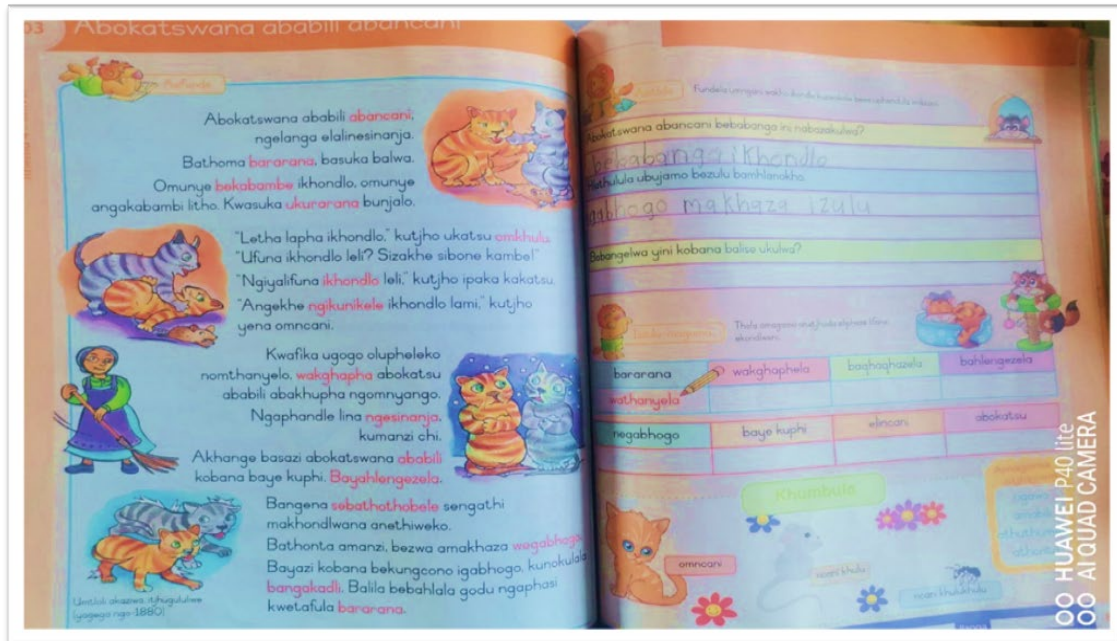 03 Abokatswana ababili abancani
Abokatswana ababili abancani,
ngelanga elalinesinanja.
Bathoma bararana, basuka balwa.
Omunye bekabambe ikhondlo, omunye
angakabambi litho. Kwasuka ukurarana bunjalo.
"Letha lapha ikhondlo," kutjho ukatsu omkhulu.
"Ufuna ikhondlo leli? Sizakhe sibone kambe!"
"Ngiyalifuna ikhondlo leli," kutjho ipaka kakatsu.
"Angekhe ngikunikele ikhondlo lami," kutjho
yena omncani.
Kwafika ugogo olupheleko
nomthanyelo, wakghapha abokatsu
ababili abakhupha ngomnyango.
Ngaphandle lina ngesinanja,
kumanzi chi.
Akhange basazi abokatswana ababili
kobana baye kuphi. Bayahlengezela.
Bangena sebathothobele sengathi
makhondlwana anethiweko.
Bathonta amanzi, bezwa amakhaza wegabhogo.
Bayazi kobana bekungcono igabhogo, kunokulala
bangakadli. Balila bebahlala godu ngaphasi
kwetafula bararana.
Abokatswana abancani bebabanga ini nabazakulwa?
bebabanga ikhondlo
Hlathulula ubujamo bezulu bamhlanokho.
gabhogo makhaza izulu
Bebangelwa yini kobana balise ukulwa?
bararana wakghaphela baghaghazela bahlengezela
wathanyela
negabhogo baye kuphi elincani abokatsu
Khumbula
omncani
ncani khulu
ncani khulukhulu
HUAWEI P40 lite
AI QUAD CAMERA